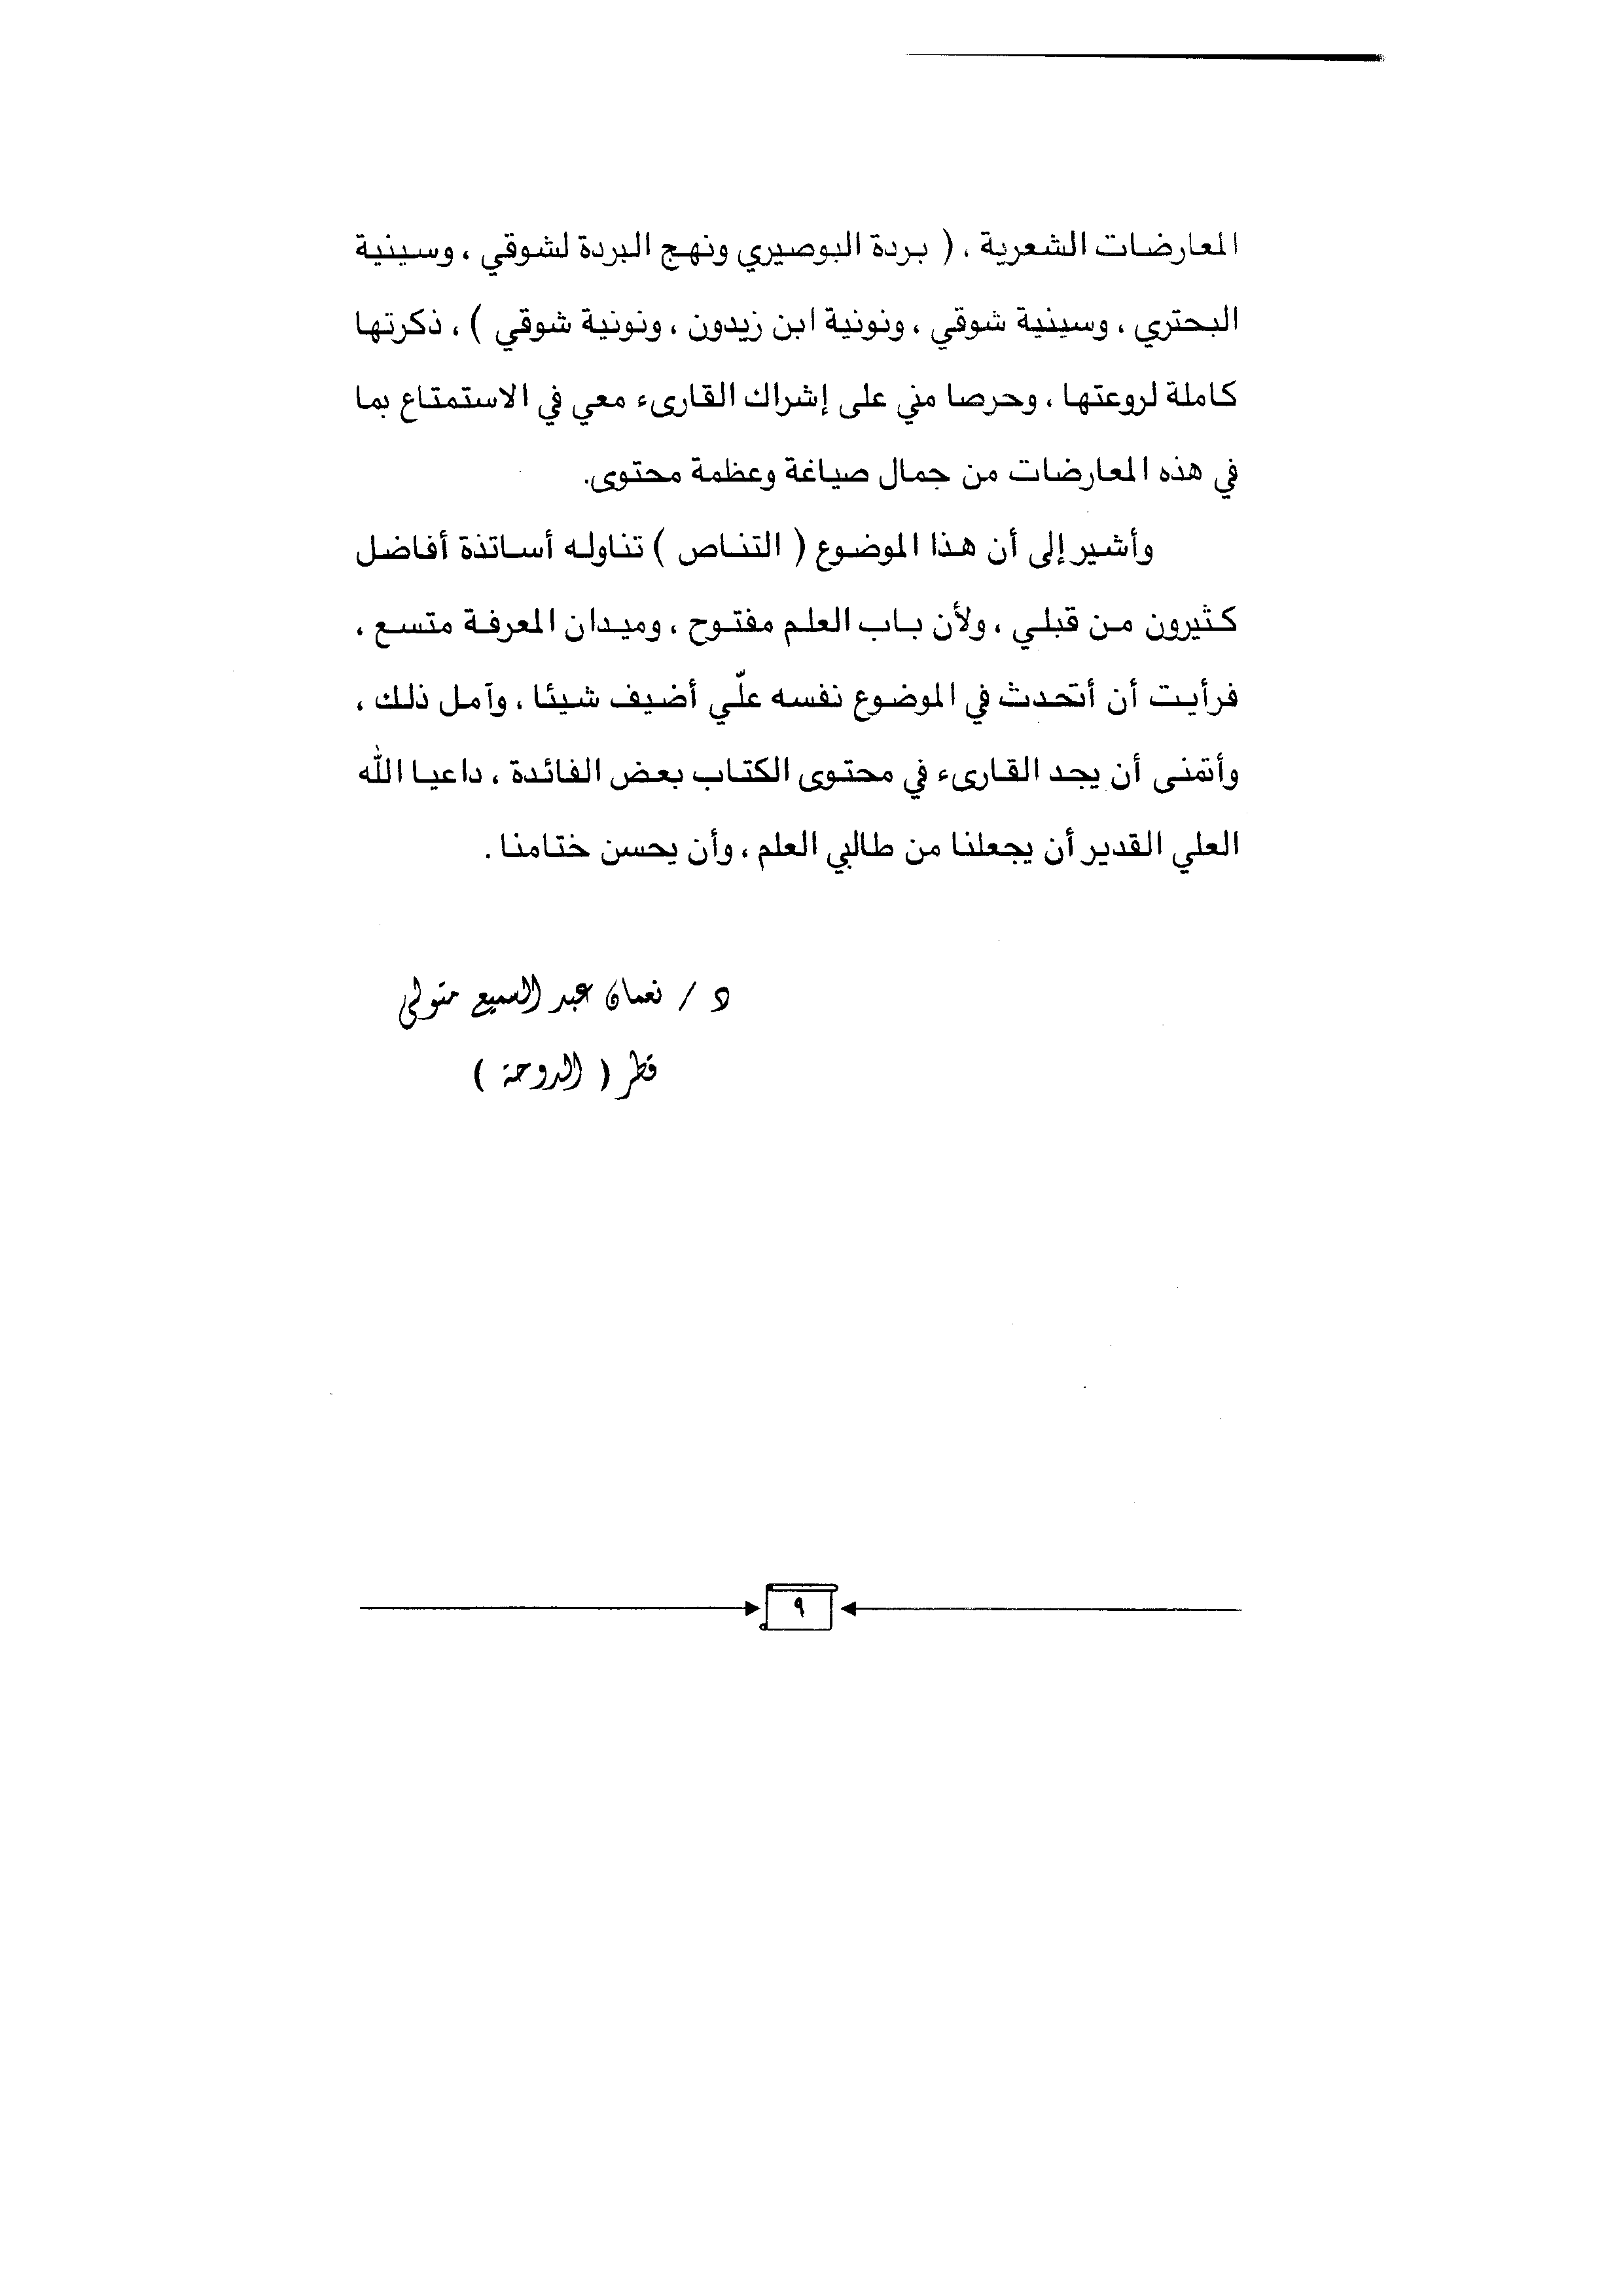 المعارضات الشعرية ، ( بردة البوصيري ونهج البردة لشوقي ، وسينية
البحتري ، وسينية شوقي ، ونونية ابن زيدون ، ونونية شوقي ) ، ذكرتها
كاملة لروعتها ، وحرصا مني على إشراك القارىء معي في الاستمتاع بما
في هذه المعارضات من جمال صياغة وعظمة محتوى.
وأشير إلى أن هذا الموضوع ( التناص ) تناوله أساتذة أفاضل
كثيرون من قبلي ، ولأن باب العلم مفتوح ، وميدان المعرفة متسع ،
فرأيت أن أتحدث في الموضوع نفسه علّي أضيف شيئا ، وآمل ذلك ،
وأتمنى أن يجد القارىء في محتوى الكتاب بعض الفائدة ، داعيا الله
العلي القدير أن يجعلنا من طالبي العلم ، وأن يحسن ختامنا .
د / نعمان عبد السميع متولي
قطر ( الدوحة )
٩